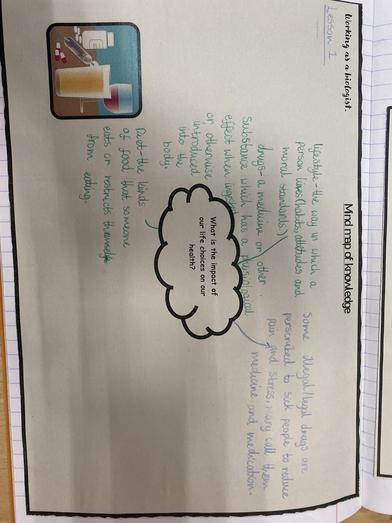 Working as a biologist.
Lesson 1
Mind map of knowledge
lifestyle - the way in which a
person lives (habits, attitudes and
moral standards)
drugs - a medicine or other
substance which has a physiological
effect when ingested
or otherwise
introduced
into the
body.
Diet - the kinds
of food that someone
eats or restricts themself
from eating.
What is the impact of
our life choices on our
health?
Some illegal/legal drugs are
perscribed to sick people to reduce
pain and stress, many call them
medicine and medication.